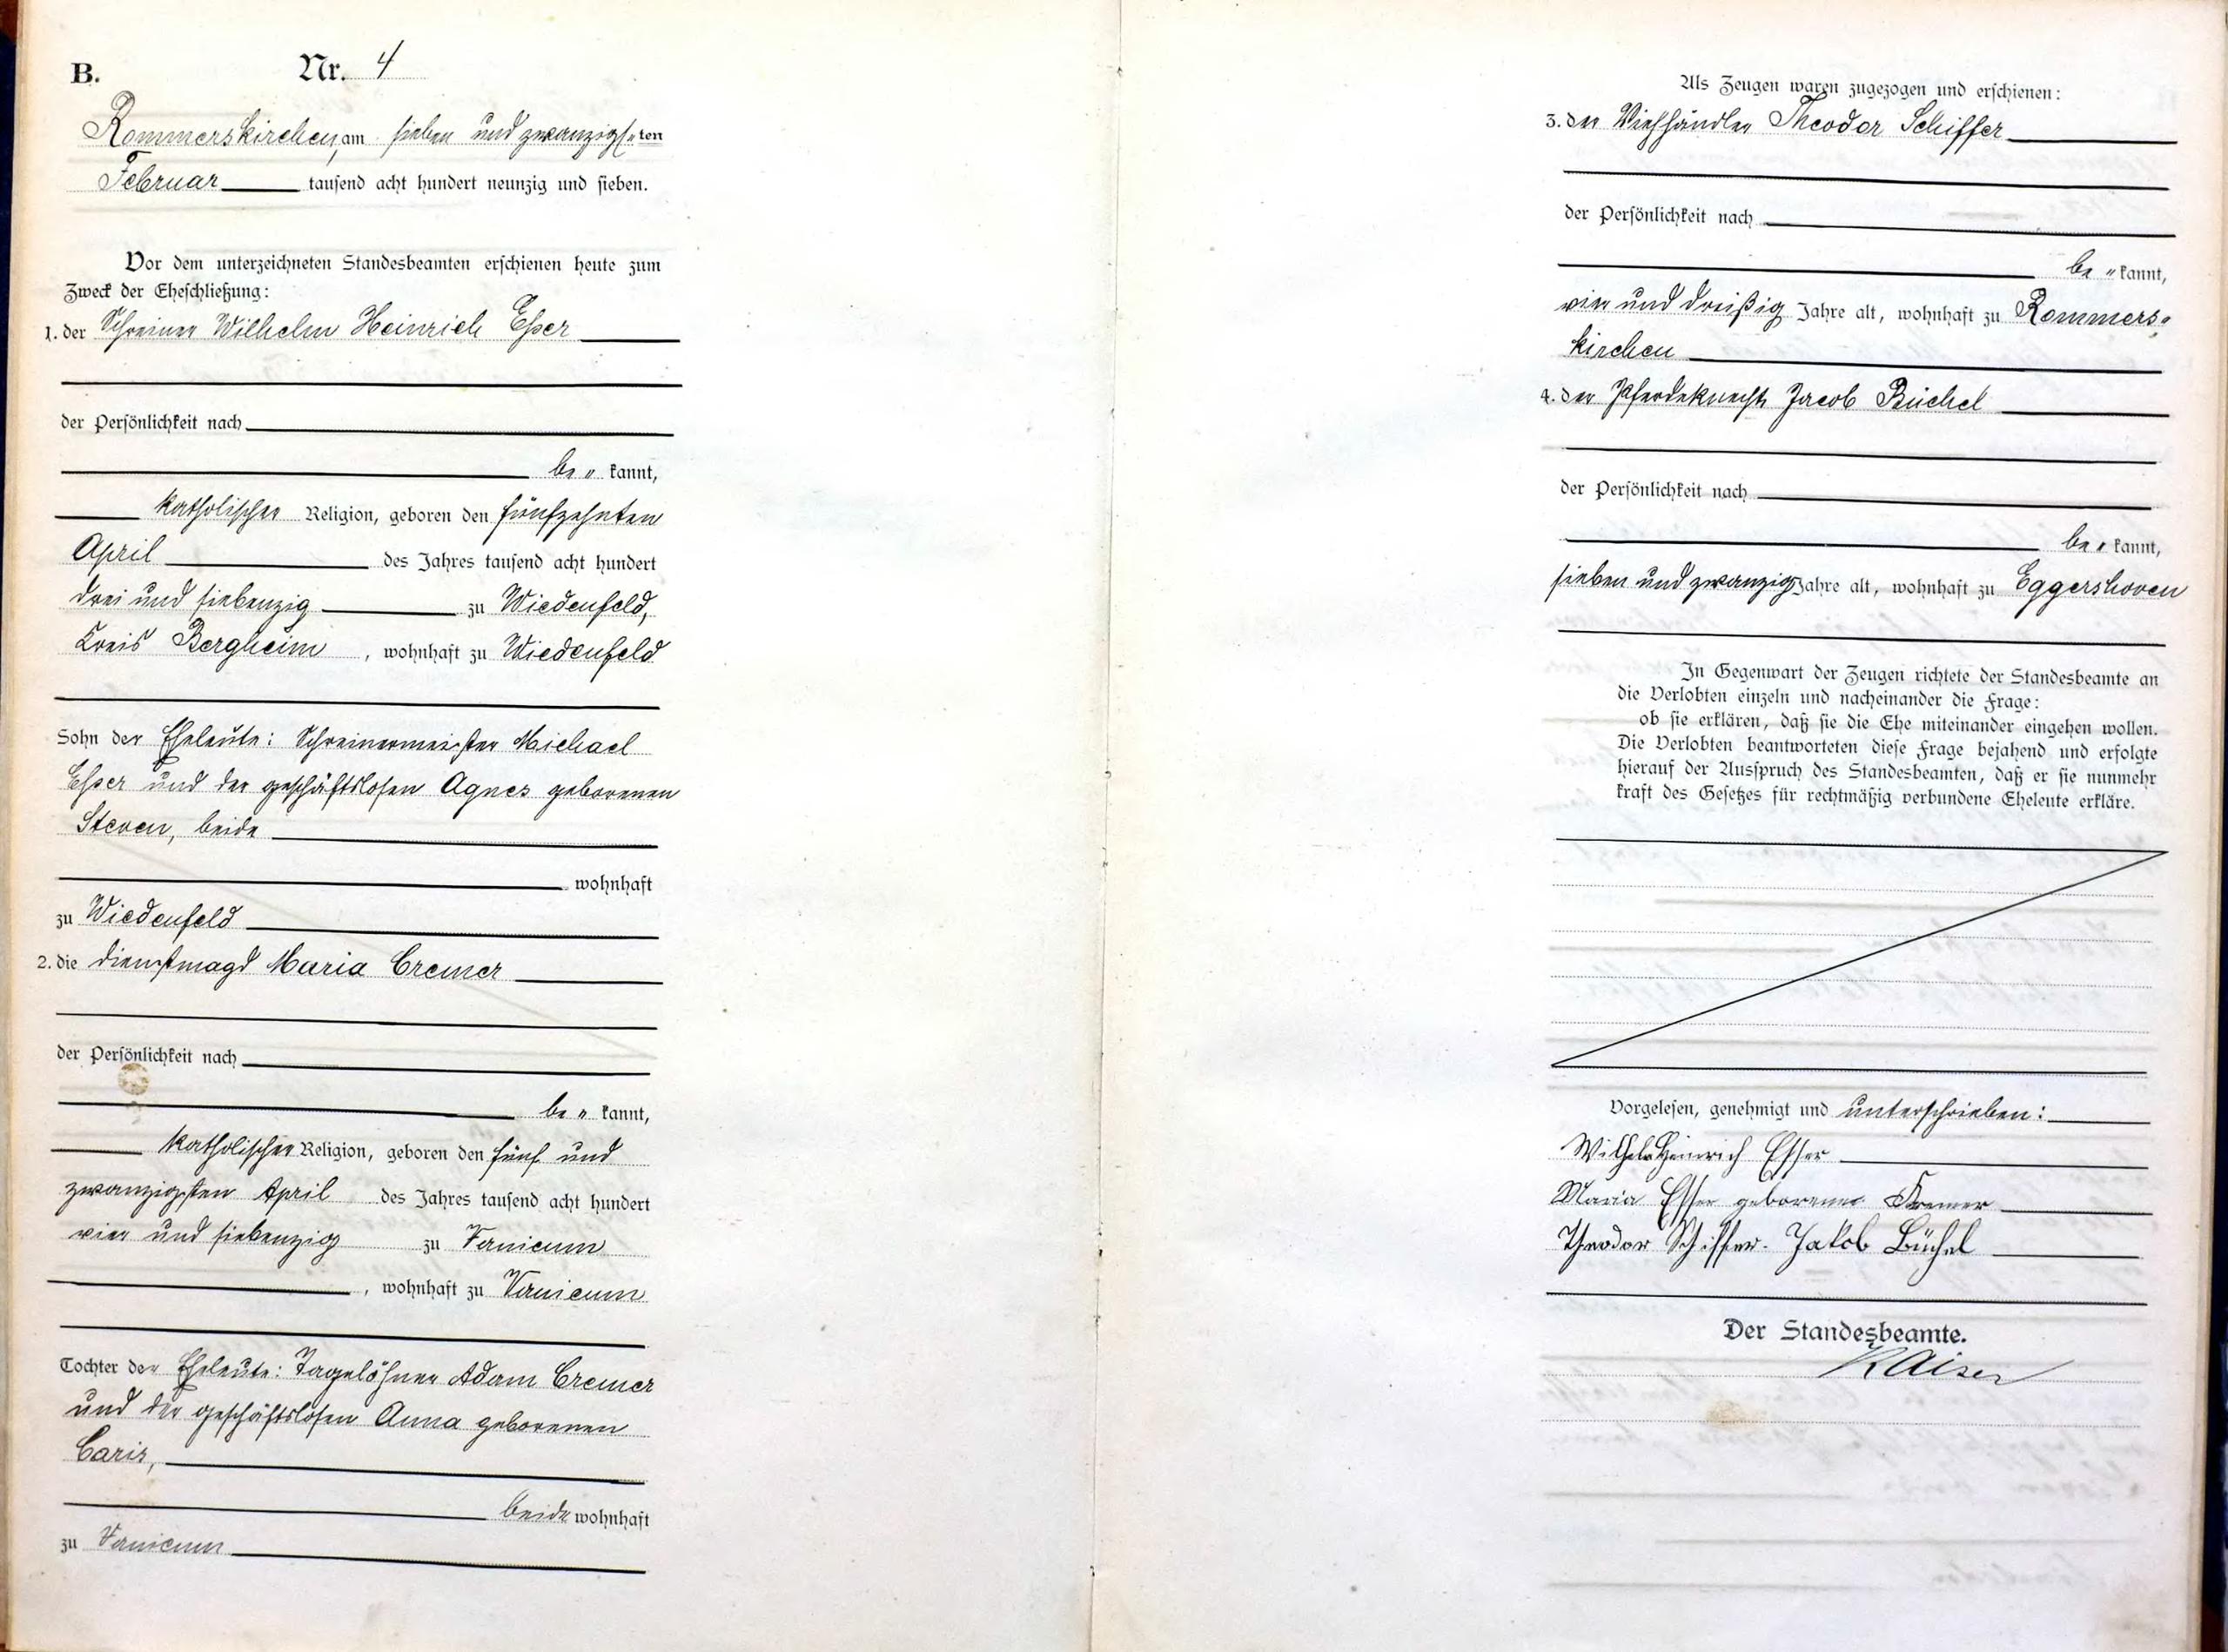 B. Nr. 4
Rommerskirchen, am sieben und zwanzigsten
Februar tausend acht hundert neunzig und sieben.
Vor dem unterzeichneten Standesbeamten erschienen heute zum
Zweck der Eheschließung:
1. der Schreiner Wilhelm Heinrich Esser
der Persönlichkeit nach
be kannt,
katholischer Religion, geboren den fünfzehnten
April des Jahres tausend acht hundert
drei und siebenzig zu Wiedenfeld,
Kreis Bergheim, wohnhaft zu Wiedenfeld
Sohn der Eheleute: Schreinermeister Michael
Esser und der geschäftslosen Agnes geborenen
Steven, beide
wohnhaft
zu Wiedenfeld
2. die Dienstmagd Maria Cremer
der Persönlichkeit nach
be kannt,
katholischer Religion, geboren den fünf und
zwanzigsten April des Jahres tausend acht hundert
vier und siebenzig zu Vanicum
, wohnhaft zu Vanicum
Tochter der Eheleute: Tagelöhner Adam Cremer
und der geschäftslosen Anna geborenen
Caris,
beide wohnhaft
zu Vanicum
Als Zeugen waren zugezogen und erschienen:
3. der Viehhändler Theodor Schiffer
der Persönlichkeit nach
be kannt,
vier und dreißig Jahre alt, wohnhaft zu Rommers-
kirchen
4. der Pferdeknecht Jacob Büchel
der Persönlichkeit nach
be kannt,
sieben und zwanzig Jahre alt, wohnhaft zu Eggershoven
In Gegenwart der Zeugen richtete der Standesbeamte an
die Verlobten einzeln und nacheinander die Frage:
ob sie erklären, daß sie die Ehe miteinander eingehen wollen.
Die Verlobten beantworteten diese Frage bejahend und erfolgte
hierauf der Ausspruch des Standesbeamten, daß er sie nunmehr
kraft des Gesetzes für rechtmäßig verbundene Eheleute erkläre.
Vorgelesen, genehmigt und unterschrieben:
Wilhelm Heinrich Esser
Maria Esser geborene Kremer
Theodor Schiffer. Jakob Büchel
Der Standesbeamte.
Kaiser